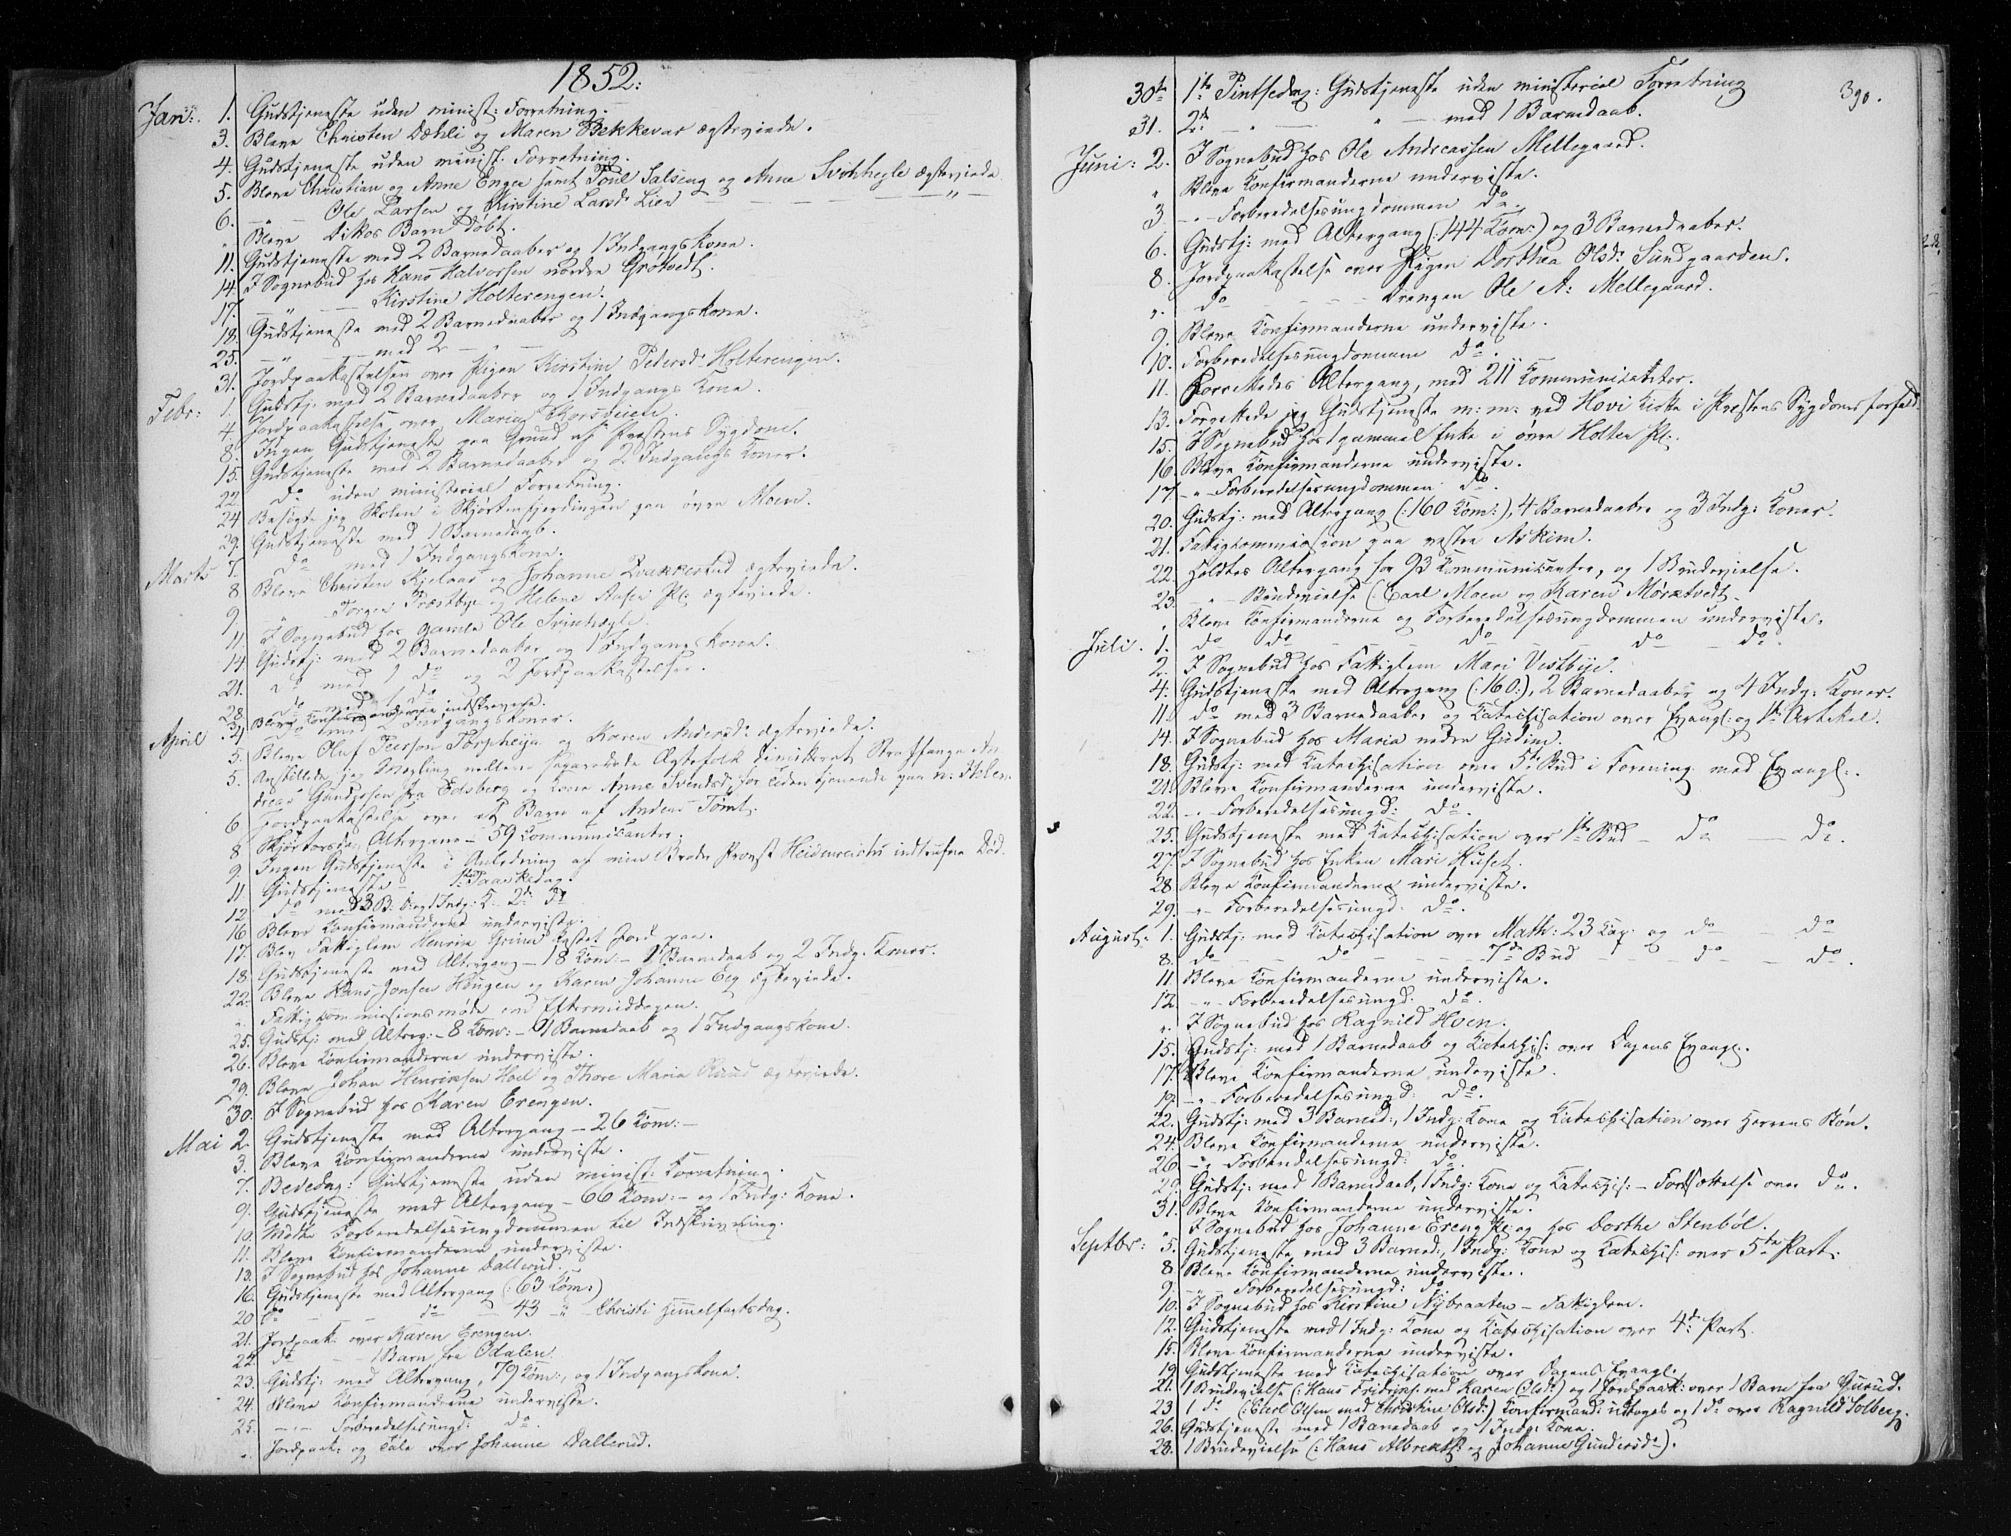 1852.
Jan: 1. Gudstjeneste uden minist: Forretning.
3. Bleve Christen Dæhli og Maren Bekkevar ægteviede.
4. Gudstjeneste uden minist. Forretning.
5. Bleve Christian og Anne Enger samt Poul Salseng og Anne Svinhegle ægteviede
6. — " — Ole Larsen og Kirstine Larsd: Lien — — — — — " —
" Bleve Barn døbt.
11. Gudstjeneste med 2 Barnedaaber og 1 Indgangskone.
14. I Sognebud hos Hans Halvorsen nordre Grøtvedt.
17. — " — — Kirstine Holterengen.
18. Gudstjeneste med 2 Barnedaaber og 1 Indgangskone.
25. — " — — med 2 — " —
31. Jordpaakastelsen over Pigen Kirstine Pedersd: Holterengen.
Febr: 1. Gudstj. med 2 Barnedaaber og 1 Indgangs Kone.
4. Jordpaakastelse over Maria Korsveien.
8. Ingen Gudstjeneste paa Grund af Præstens Sygdom.
15. Gudstjeneste med 2 Barnedaaber og 2 Indgangs Koner.
22. do uden ministeriel Forretning.
24. Besøgte jeg Skolen i Skjørtenfjerdingen paa øvre Moen.
29. Gudstjeneste med 1 Barnedaab.
Marts 7. do med 1 Indgangskone.
8 Bleve Christen Kjelaas og Johanne Kvakkestad ægteviede.
9 — " — Jørgen Præstbye og Helene Aasen Pl: ægteviede.
11. I Sognebud hos gamle Ole Svinhegle.
14. Gudstj: med 2 Barnedaaber og 1 Indgangskone.
21. do med 1 do og 2 Jordpaakastelser.
28. do med 1 do
31. Bleve Konfirmanderne indskrevne.
April do med Indgangskoner.
5. Bleve Oluf Peerson Torpheije og Karen Andersd: ægteviede.
5. Anstillede jeg Mægling mellem separerede Ægtefolk dimitteret Straffange An-
dreas Gundersen fra Edsberg og Kone Anne Svendsd: for Tiden tjenende paa n: Skolen.
6 Jordpaakastelse over et Barn af Anders Tømt.
8 Skjærtorsdag Altergang — 59 Communikanter.
9. Ingen Gudstjeneste i Anledning af min Broder Provst Heidenreichs indtrufne Død.
11. Gudstjeneste — 1ste Paaskedag.
12. do med 3 B: D: og 1 Indg: K — 2den do
16 Bleve Konfirmanderne underviste.
17. Blev Fattiglem Henrik Grimi kastet Jord paa.
18. Gudstjeneste med Altergang — 18 Kom: — 1 Barnedaab og 2 Indg. Koner.
22. Bleve Hans Jonsen Haugen og Karen Johanne Eeg ægteviede.
" Fattigkommissionsmøde om Eftermiddagen.
25. Gudstj: med Alterg: — 8 Kom: — 1 Barnedaab og 1 Indgangskone.
26. Bleve Konfirmanderne underviste.
29. Bleve Johan Henriksen Hoel og Thore Maria Ruud ægteviede.
30. I Sognebud hos Karen Erengen.
Mai 2. Gudstjeneste med Altergang — 26 Kom: —
3. Bleve Konfirmanderne underviste.
7. Bededag: Gudstjeneste uden minist: Forretning.
9. Gudstjeneste med Altergang — 66 Kom: — og 1 Indg: Kone.
10. Mødte Forberedelsesungdommen til Indskrivning.
11. Bleve Konfirmanderne underviste.
13. I Sognebud hos Johanne Dallerud.
16. Gudstjeneste med Altergang (: 63 Kom:)
20 do — — do — 43 — " — Christi Himmelfartsdag.
21. Jordpaak: over Karen Erengen.
22. do — — 1 Barn fra Odalen.
23. Gudstj: med Altergang, 79 Kom:, og 1 Indgangskone.
24. Bleve Konfirmanderne underviste.
25. — " — Forberedelsesungd: do.
" Jordpaak: og Tale over Johanne Dallerud.
390.
30te 1ste Pintsedag: Gudstjeneste uden ministeriel Forretning
31. 2den — " — — " — med 1 Barnedaab.
Juni: 2. I Sognebud hos Ole Andreassen Mellegaard.
" Bleve Konfirmanderne underviste.
3 — " — Forberedelsesungdommen do.
6. Gudstj: med Altergang (: 144 Kom:) og 3 Barnedaaber.
8. Jordpaakastelse over Pigen Dorthea Olsd: Sundgaarden.
" do — — — Drengen Ole A: Mellegaard.
9. Bleve Konfirmanderne underviste.
10. Forberedelsesungdommen do.
11. Forrettedes Altergang, med 211 Kommunikanter.
13. Forrettede jeg Gudstjeneste m: m: ved Hovi Kirke i Prestens Sygdomsforfald.
15. I Sognebud hos 1 gammel Enke i øvre Holter Pl:.
16. Bleve Konfirmanderne underviste.
17. — " — Forberedelsesungdommen do.
20. Gudstj: med Altergang (: 160 Kom:), 4 Barnedaaber og 3 Indg: Koner.
21. Fattigkommission paa vestre Askim.
22. Holdtes Altergang for 93 Kommunikanter, og 1 Brudevielse.
23. — " — Brudevielse (: Carl Moen og Karen Mørktvedt.
" Bleve Konfirmanderne og Forberedelsesungdommen underviste.
Juli. 1. do do — do — do — do.
2. I Sognebud hos Fattiglem Mari Vestbye.
4. Gudstjeneste med Altergang (: 160:), 2 Barnedaaber og 4 Indg: Koner.
11. do med 3 Barnedaaber og Katechisation over Evangl: og 1ste Artikel.
14. I Sognebud hos Maria nedre Gudim.
18. Gudstj: med Katechisation over 5te Bud i Forening med Evangl:.
21. Bleve Konfirmanderne underviste.
22. — " — Forberedelsesungd: do.
25. Gudstjeneste med Katechisation over 1ste Bud — do — do.
27. I Sognebud hos Enken Mari Huset.
28 Bleve Konfirmanderne underviste.
29. — " — Forberedelsesungd: do.
August: 1. Gudstj: med Katechisation over Math: 23 Kap: og do — do
8. do — — do — — — 7de Bud — — do — do.
11. Bleve Konfirmanderne underviste.
12 — " — Forberedelsesungd: do.
" I Sognebud hos Ragnild Hoen.
15. Gudstj: med 1 Barnedaab og Katechis: over Dagens Evangl:.
17. Bleve Konfirmanderne underviste.
19. — " — Forberedelsesungd: do.
22. Gudstj: med 3 Barned:, 1 Indg: Kone og Katechisation over Herrens Bøn.
24. Bleve Konfirmanderne underviste.
26 — " — Forberedelsesungd: do.
29. Gudstj: med 1 Barnedaab, 1 Indg: Kone og Katechis: — Fortsættelse over do.
31. Bleve Konfirmanderne underviste.
" I Sognebud hos Johanne Ereng Pl: og hos Dorthe Stenbøl.
Septbr: 5. Gudstjeneste med 3 Barned:, 1 Indg: Kone og Katechis: over 5te Part.
8 Bleve Konfirmanderne underviste.
9. — " — Forberedelsesungd: do
10. I Sognebud hos Kirstine Nybraaten — Fattiglem.
12. Gudstjeneste med 1 Indg: Kone og Katechisation over 4de Part.
15. Bleve Konfirmanderne underviste.
19. Gudstjeneste med Katechisation over Dagens Evangl:
21. 1 Brudevielse (: Hans Fridrichs: med Karen Olsd:) og 1 Jordpaak: over 1 Barn fra Gusrud.
23 1 do (: Carl Olsen med Christine Olsd:) Konfirmand: udtoges og 1 do over Ragnild Solberg.
26. Gudstjeneste med 1 Barnedaab og 1 Indg: Kone.
28. 1 Brudevielse (: Hans Albrekts: og Johanne Gundersd:).